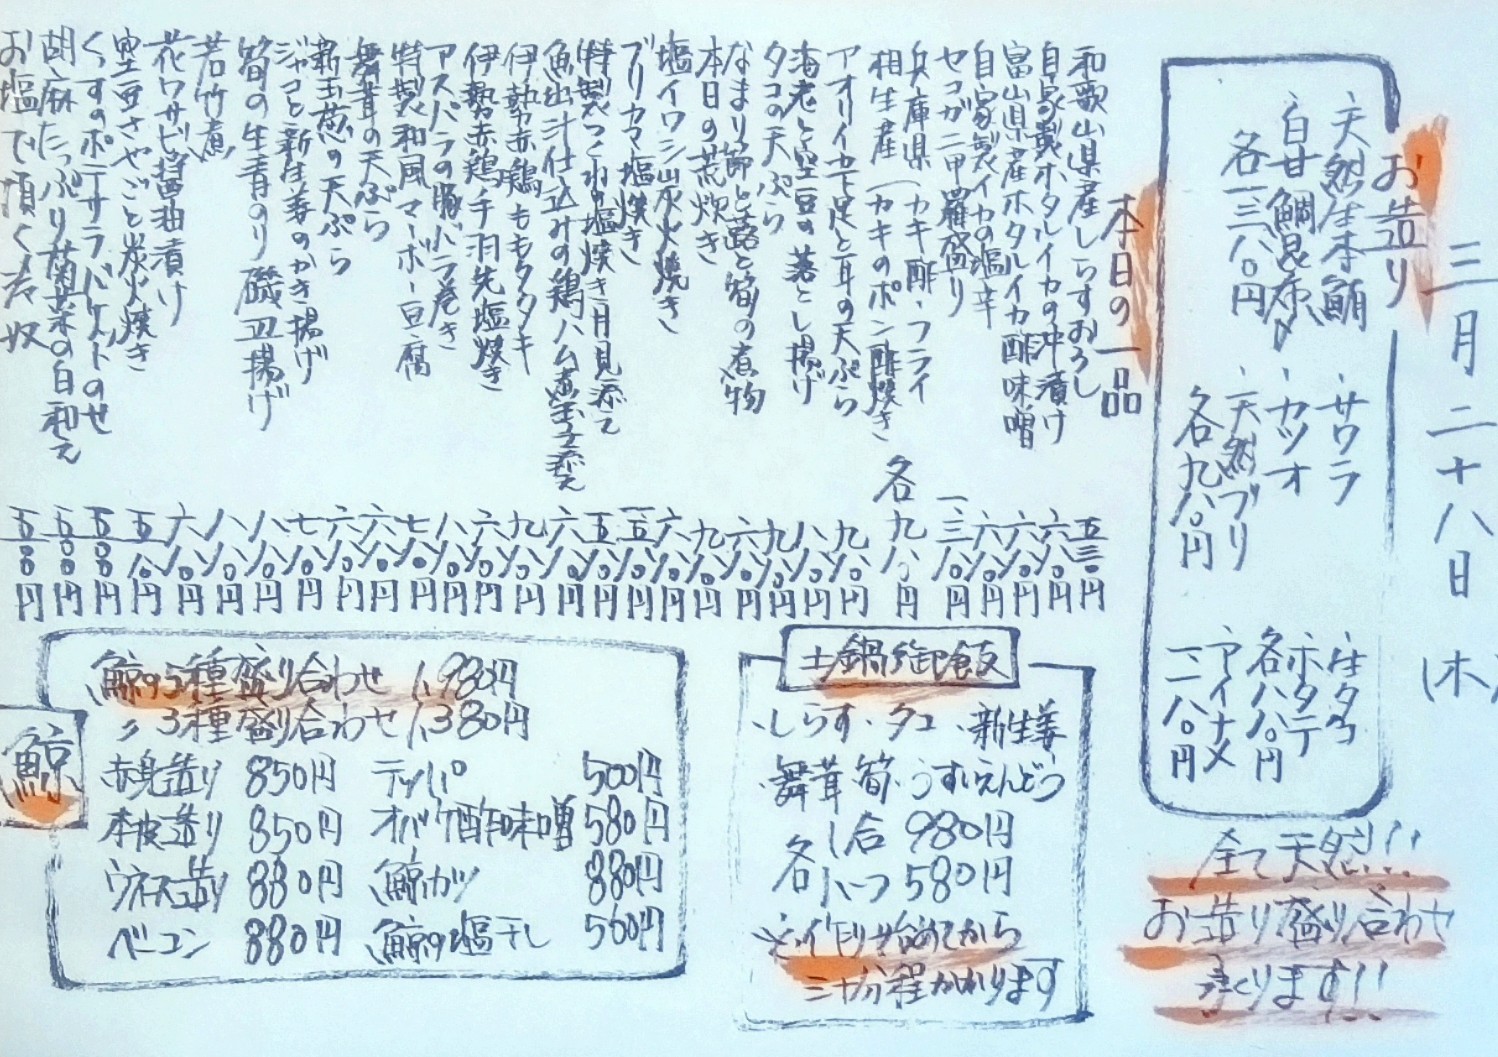 三月二十八日(木)
お造り
・天然生本鮪
・白甘鯛昆布〆
各一三八〇円
・サワラ
・カツオ
・天然ブリ
各九八〇円
・生タコ
・ホタテ
各八八〇円
・アイナメ
一二八〇円
全て天然!!
お造り盛り合わせ
承ります!!
本日の一品
和歌山県産しらすおろし 五三〇円
自家製ホタルイカの沖漬け 六八〇円
富山県産ホタルイカ酢味噌 六八〇円
自家製イカの塩辛 六八〇円
セコガニ甲羅盛り 一三八〇円
兵庫県(カキ酢・フライ
相生産(カキのポン酢焼き 各九八〇円
アオリイカ下足と耳の天ぷら 九八〇円
海老と空豆の落とし揚げ 八八〇円
タコの天ぷら 九八〇円
なまり節と蕗と筍の煮物 六八〇円
本日の荒炊き 九八〇円
塩イワシ炭火焼き 六八〇円
ブリカマ塩焼き
特製つくねの塩焼き月見添え 五八〇円
魚出汁仕込みの鶏ハム煮玉子添え 六八〇円
伊勢赤鶏ももタタキ 九八〇円
伊勢赤鶏手羽先塩焼き 六八〇円
アスパラの豚バラ巻き 八八〇円
特製和風マーボー豆腐 七八〇円
舞茸の天ぷら 六八〇円
新玉葱の天ぷら 六八〇円
ジャコと新生姜のかき揚げ 七八〇円
筍の生青のり磯辺揚げ 八八〇円
若竹煮 八八〇円
花ワサビ醤油漬け 六八〇円
空豆さやごと炭火焼き 五八〇円
くっすのポテサラバケットのせ 五〇〇円
胡麻たっぷり菊菜の白和え 五〇〇円
お塩で頂く冷奴 五〇〇円
土鍋御飯
・しらす・タコ・新生姜
・舞茸・筍・うすいえんどう
各一合 980円
各ハーフ 580円
三十分程かかります
鯨
鯨の5種盛り合わせ 1,980円
〃 3種盛り合わせ 1,380円
赤身造り 850円
本皮造り 850円
ウネス造り 880円
ベーコン 880円
テッパ 500円
オバケ酢味噌 580円
鯨カツ 880円
鯨の塩干し 500円